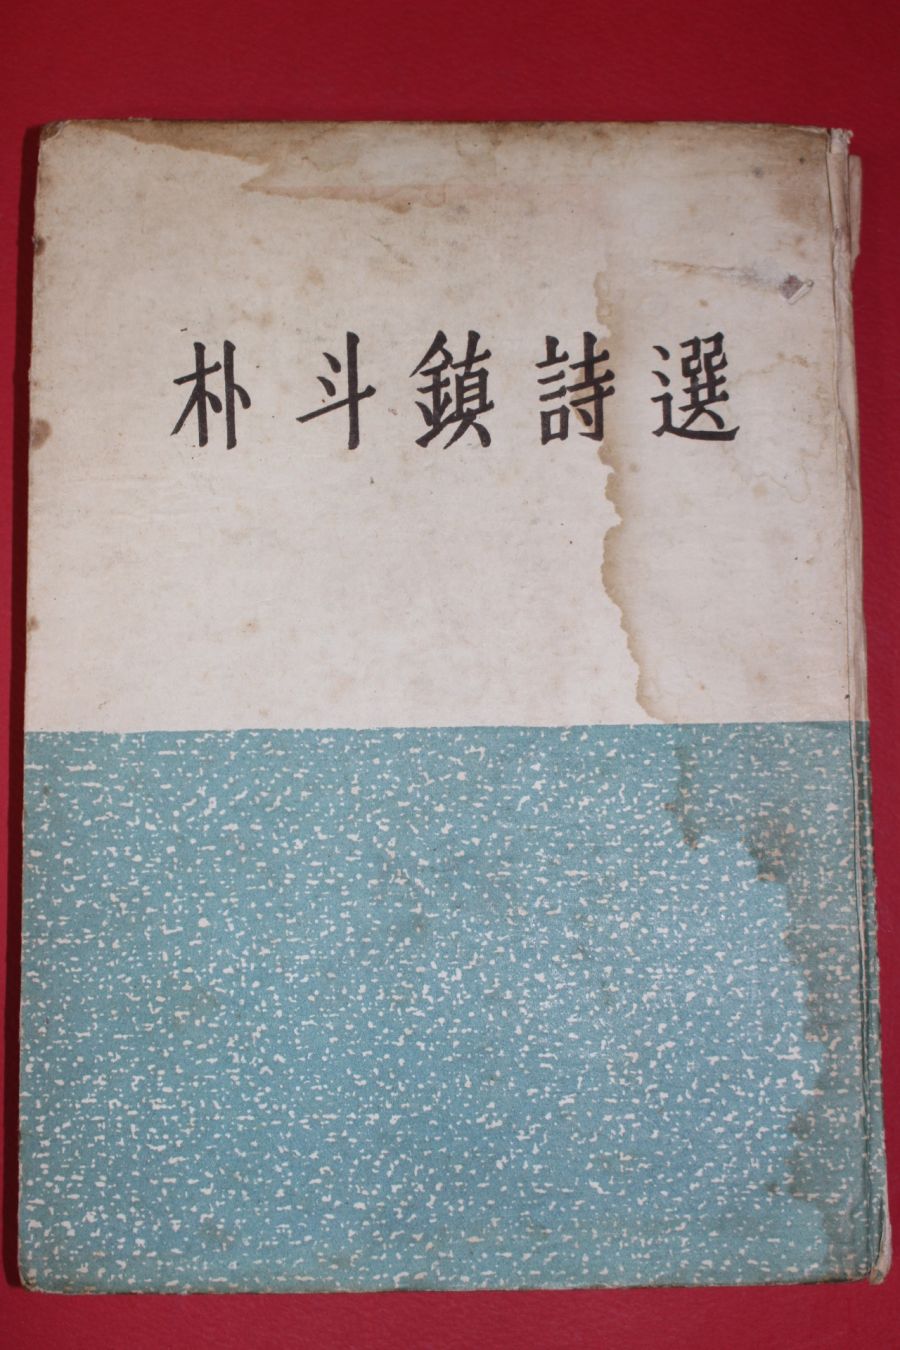 朴斗鎮詩選